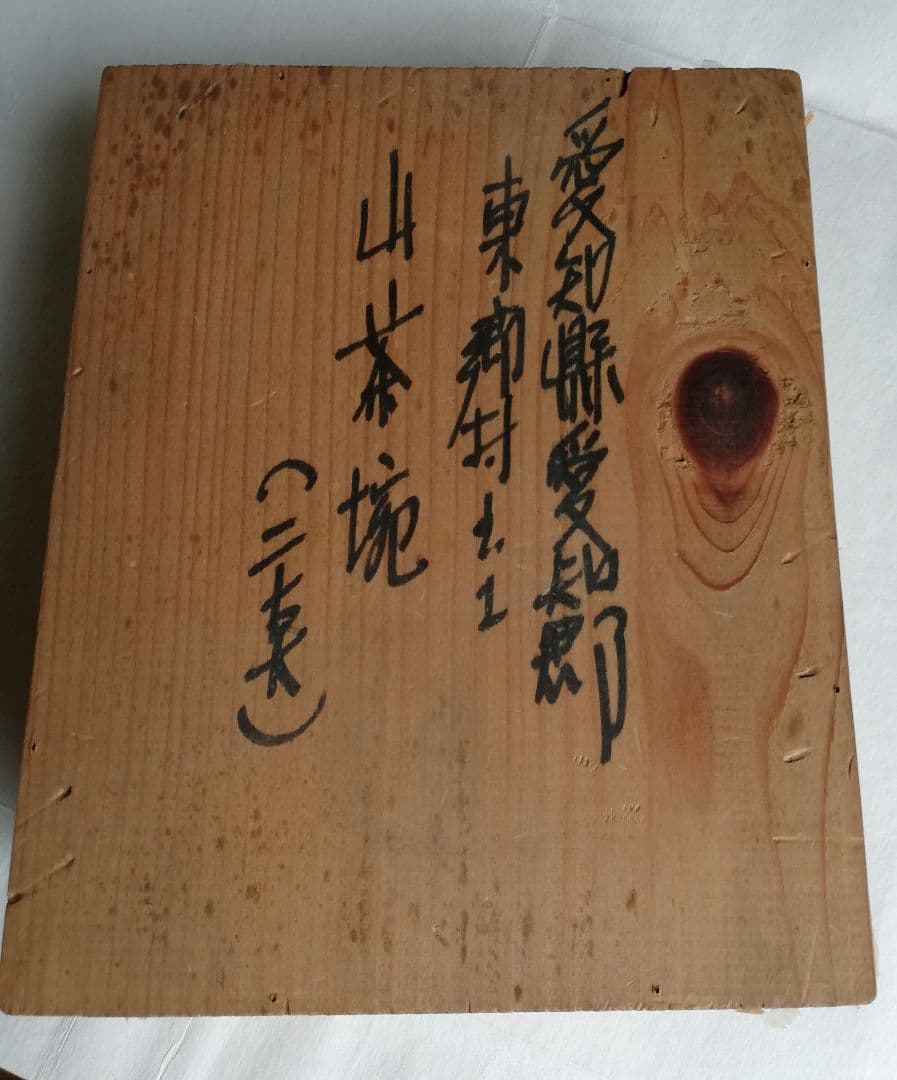 愛知縣愛知郡
東郷村出土
山茶埦
(二)